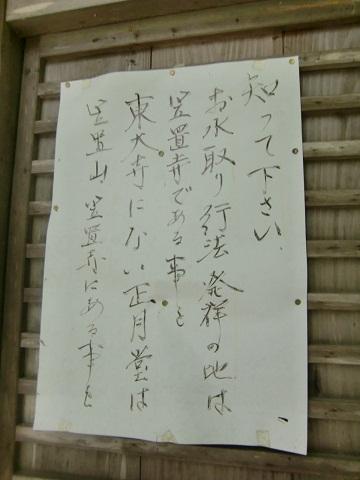 知って下さい
お水取り行法発祥の地は
笠置寺である事を
東大寺にない正月堂は
笠置山、笠置寺にある事を